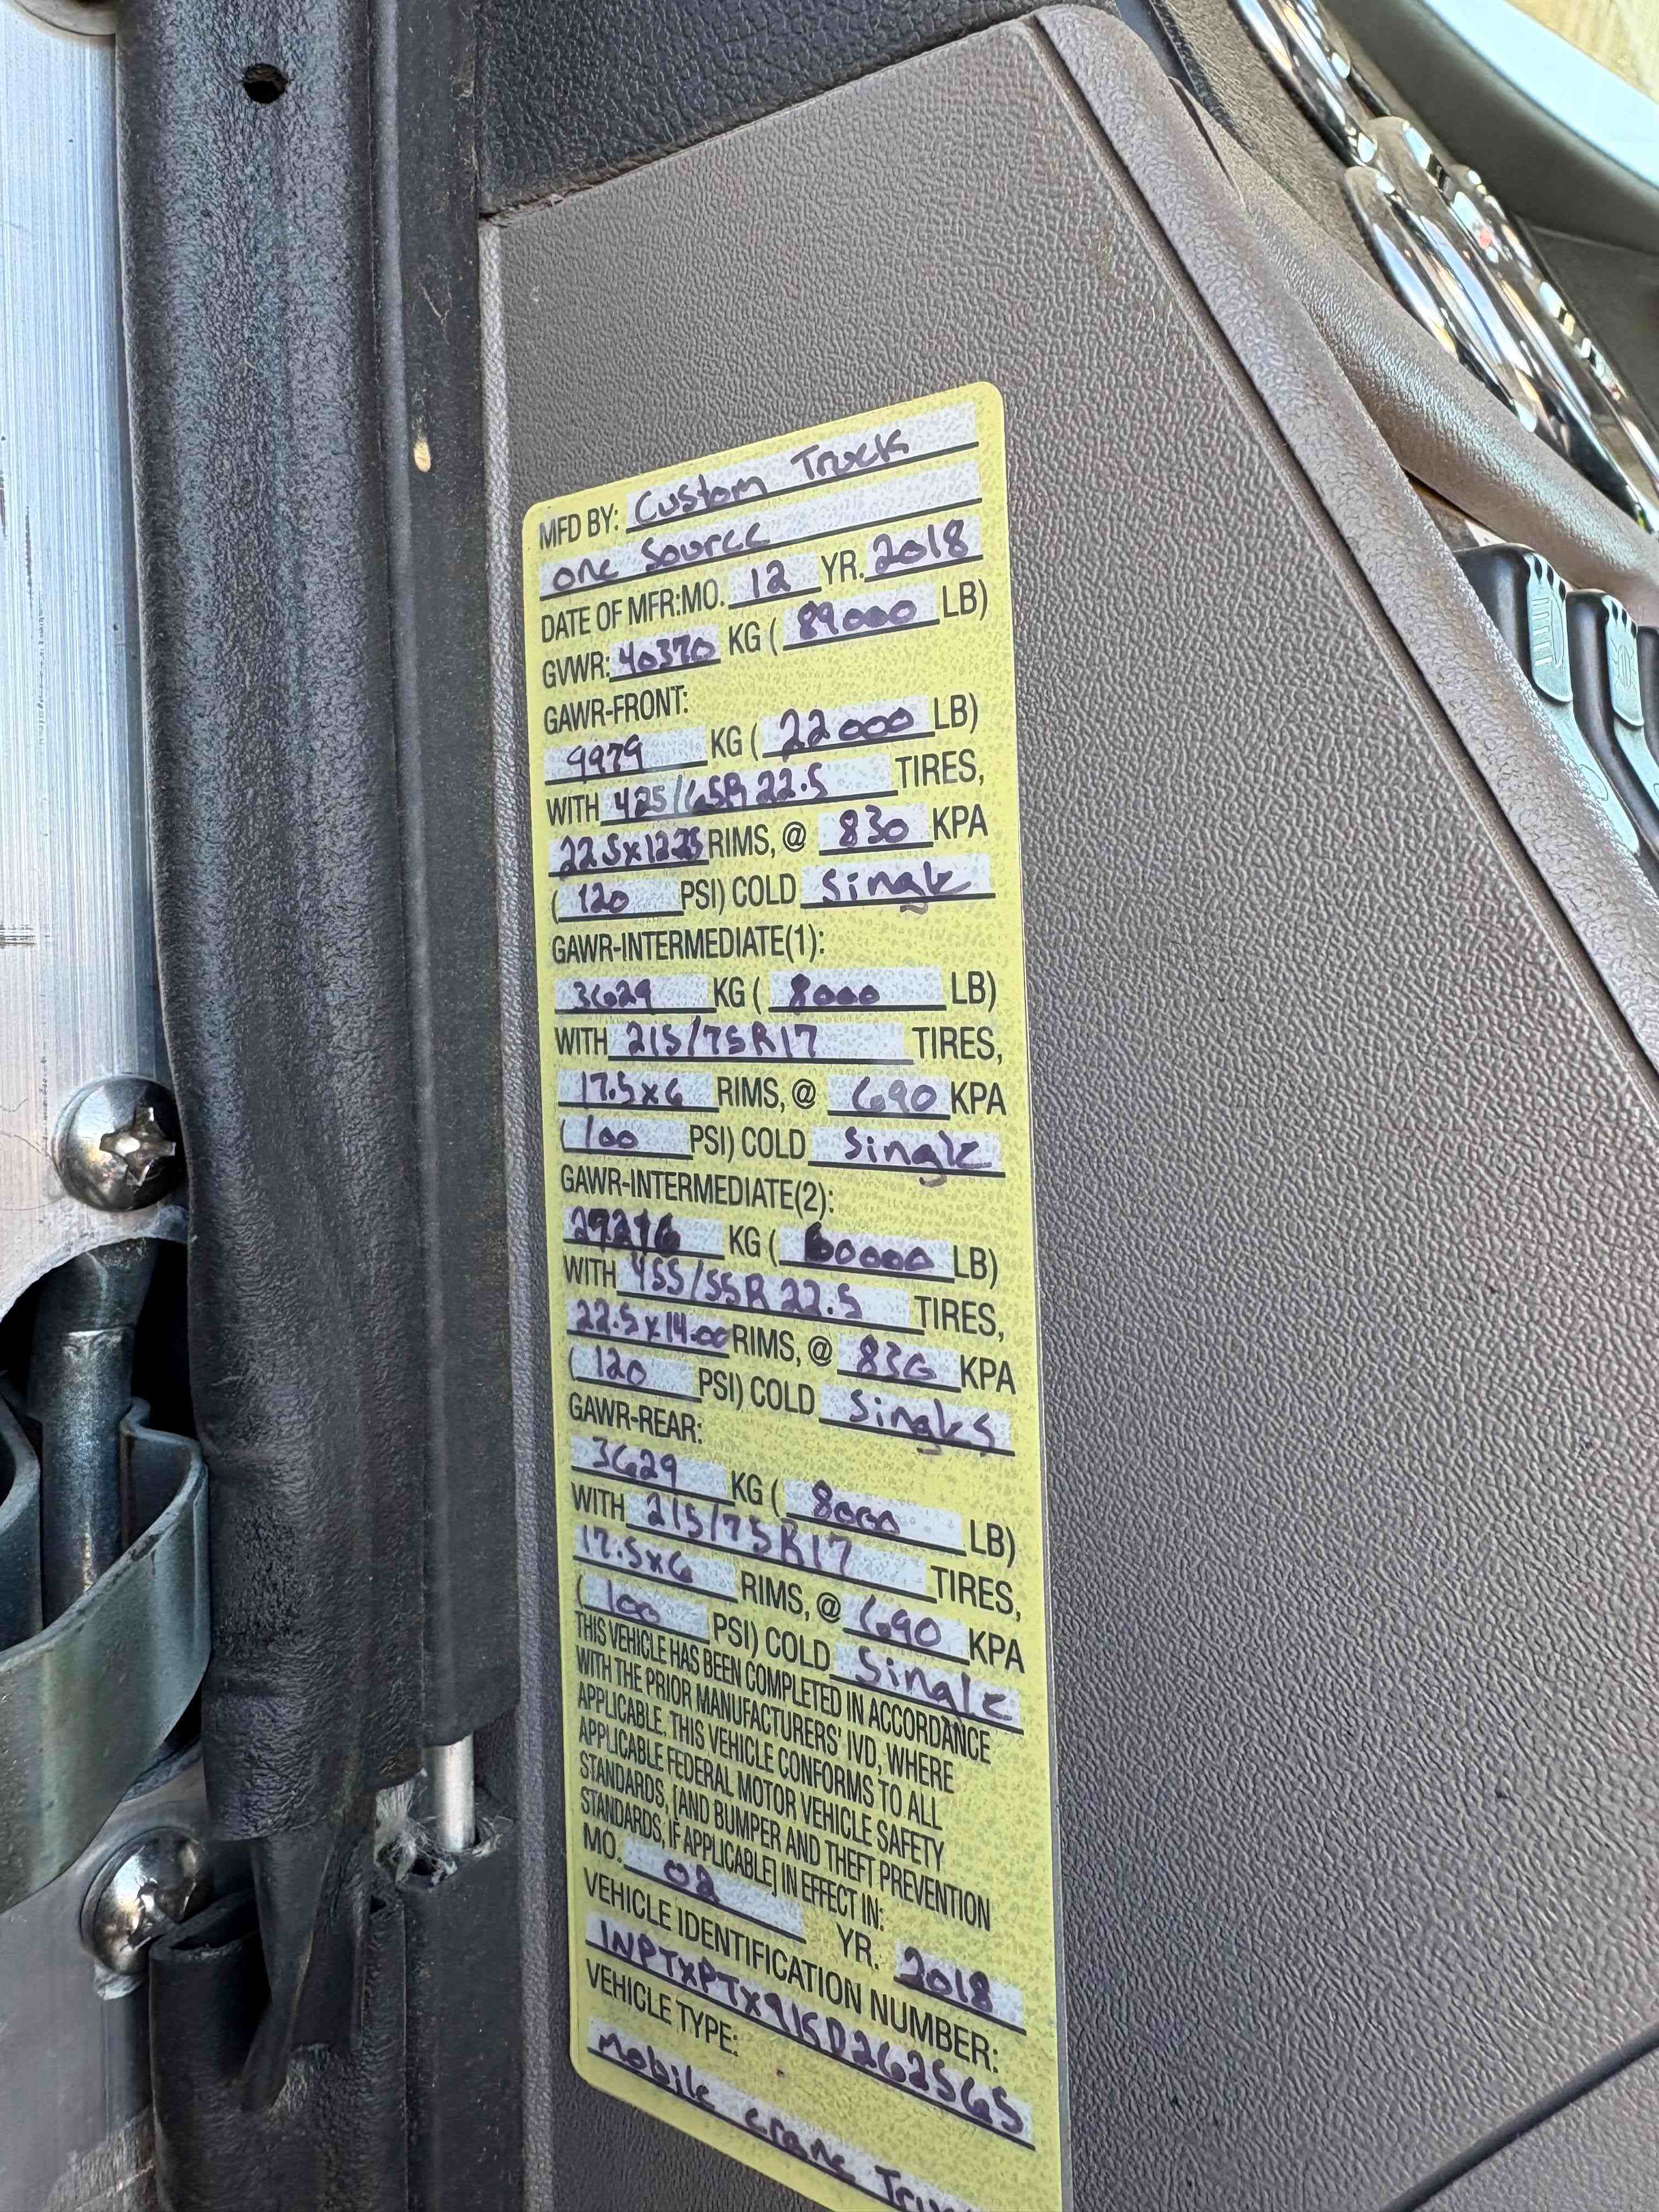 MFD BY: Custom Truck
One Source
DATE OF MFR:MO. 12 YR. 2018
GVWR: 40370 KG ( 89000 LB)
GAWR-FRONT:
9979 KG ( 22000 LB)
WITH 425/65R 22.5 TIRES,
22.5x12.25 RIMS, @ 830 KPA
( 120 PSI) COLD Single
GAWR-INTERMEDIATE(1):
3629 KG ( 8000 LB)
WITH 215/75R17 TIRES,
17.5x6 RIMS, @ 690 KPA
( 100 PSI) COLD Single
GAWR-INTERMEDIATE(2):
KG ( 60000 LB)
WITH 455/55R 22.5 TIRES,
22.5x14.00 RIMS, @ KPA
( 120 PSI) COLD Singles
GAWR-REAR:
3629 KG ( 8000 LB)
WITH 215/75R17 TIRES,
17.5x6 RIMS, @ 690 KPA
( 100 PSI) COLD Single
THIS VEHICLE HAS BEEN COMPLETED IN ACCORDANCE
WITH THE PRIOR MANUFACTURERS' IVD, WHERE
APPLICABLE. THIS VEHICLE CONFORMS TO ALL
APPLICABLE FEDERAL MOTOR VEHICLE SAFETY
STANDARDS, [AND BUMPER AND THEFT PREVENTION
STANDARDS, IF APPLICABLE] IN EFFECT IN:
MO. 02 YR. 2018
VEHICLE IDENTIFICATION NUMBER:
1NPTXPTX9KD262565
VEHICLE TYPE:
Mobile Crane